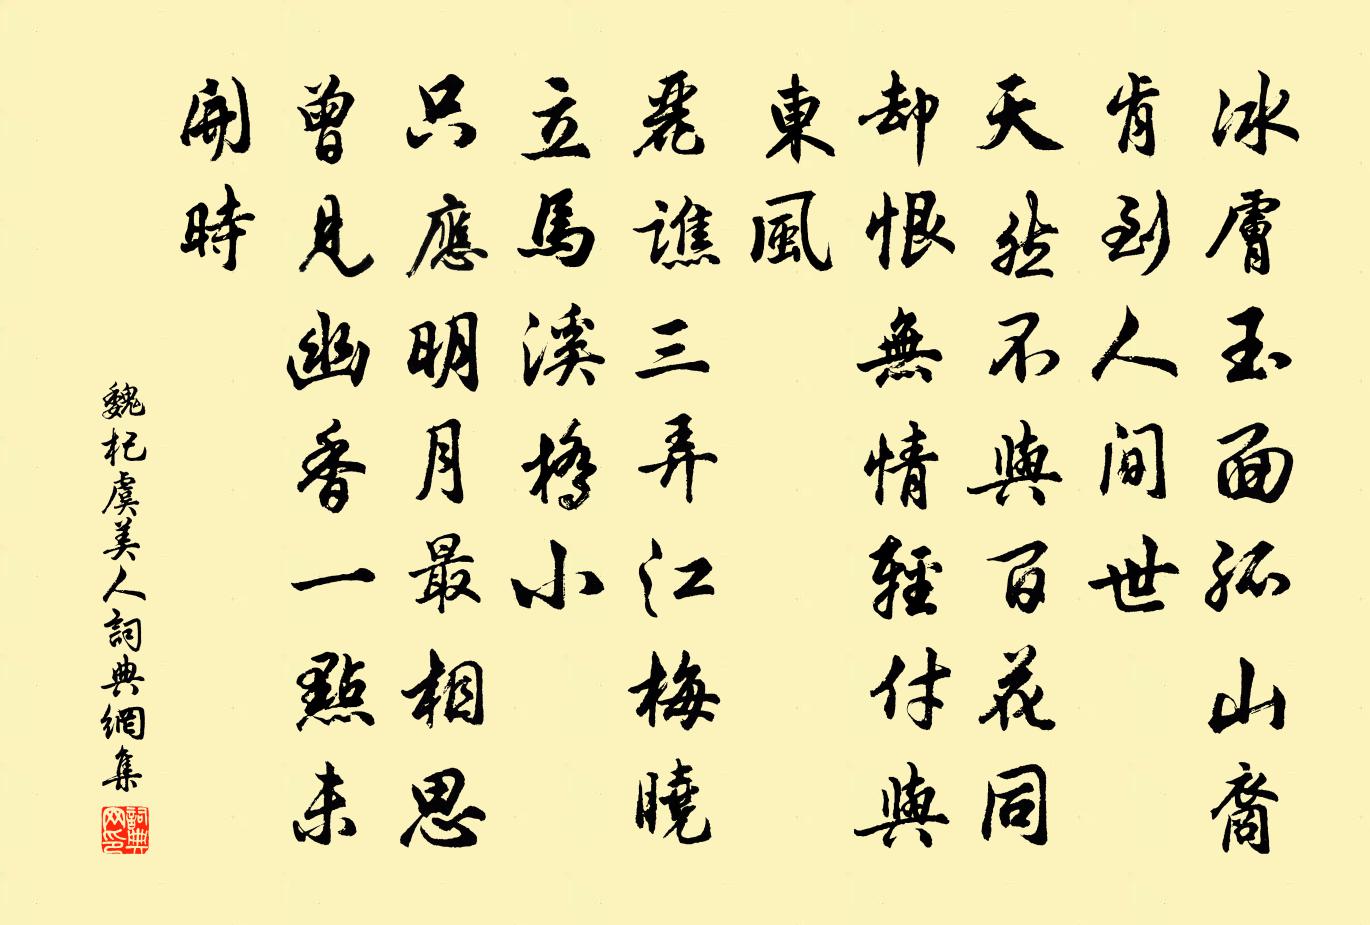 冰膚玉面孤山裔
肯到人間世
天然不與百花同
却恨無情輕付與
東風
麗譙三弄江梅曉
立馬溪橋小
只應明月最相思
曾見幽香一點未
開時
魏杞虞美人詞典網集
詞典
网印